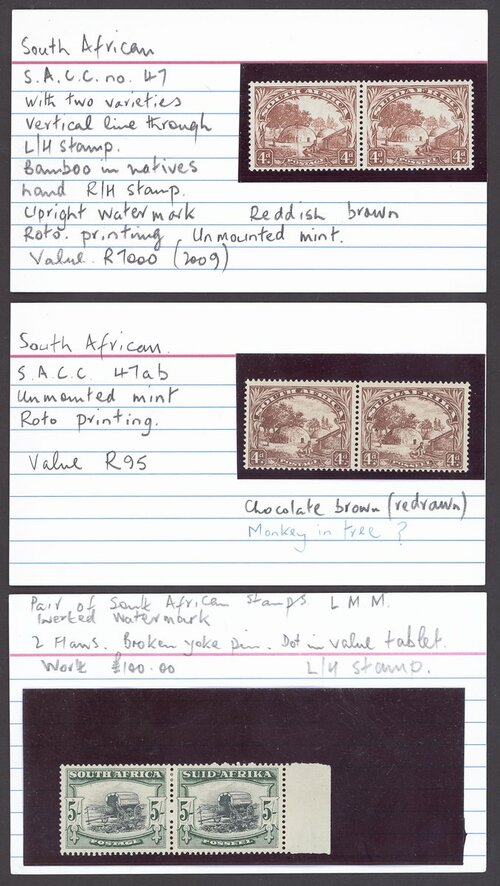 South African
S.A.C.C. no. 47
with two varieties
vertical line through
L/H stamp.
Bamboo in natives
hand R/H stamp.
Upright watermark Reddish brown
Roto. printing Unmounted mint.
Value. R1000 (2009)
SOUTH AFRICA SUIDAFRIKA
4D 4D 4D 4D
POSTAGE POSSEEL
South African.
S.A.C.C. 47ab
Unmounted mint
Roto printing.
Value R95
SOUTH AFRICA SUIDAFRIKA
4D 4D 4D 4D
POSTAGE POSSEEL
Chocolate brown (redrawn)
Monkey in tree ?
Pair of South African Stamps L M M.
Inverted Watermark
2 Flaws. Broken yoke pin. Dot in value tablet.
Worth £100.00 L/H stamp.
SOUTH AFRICA SUID-AFRIKA
5/- 5/- 5/- 5/-
POSTAGE POSSEËL